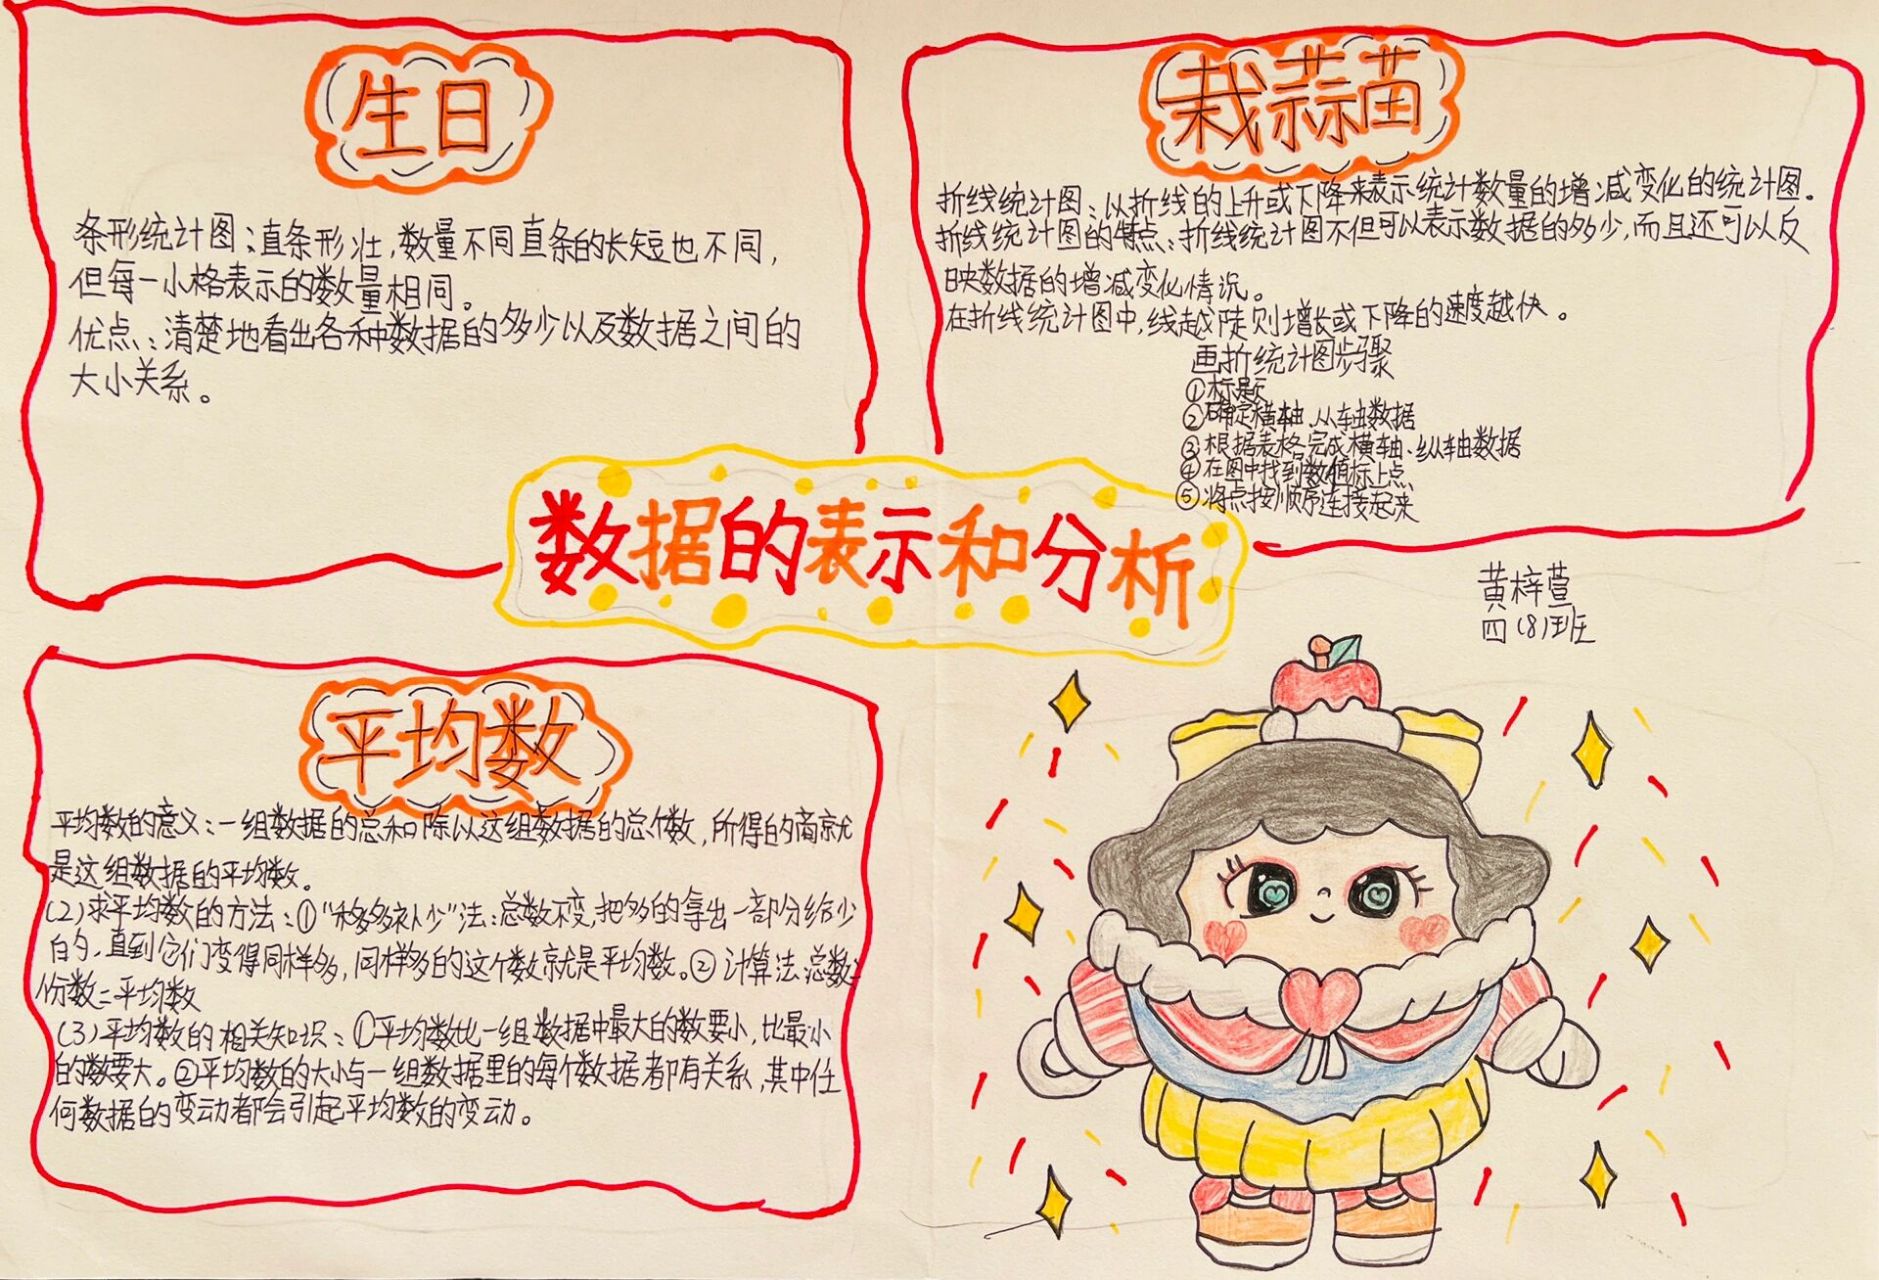 生日
条形统计图：直条形壮，数量不同直条的长短也不同，
但每一小格表示的数量相同。
优点：清楚地看出各种数据的多少以及数据之间的
大小关系。
栽蒜苗
折线统计图：以折线的上升或下降来表示统计数量的增减变化的统计图。
折线统计图的特点：折线统计图不但可以表示数据的多少，而且还可以反
映数据的增减变化情况。
在折线统计图中，线越陡则增长或下降的速度越快。
画折统计图步骤
①标题
②确定横轴、从轴数据
③根据表格完成横轴、纵轴数据
④在图中找到数值标上点
⑤将点按顺序连接起来
数据的表示和分析
黄梓萱
四(8)班
平均数
平均数的意义：一组数据的总和除以这组数据的总个数，所得的商就
是这组数据的平均数。
(2)求平均数的方法：①“移多补少”法：总数不变，把多的拿出一部分给少
的，直到它们变得同样多，同样多的这个数就是平均数。②计算法：总数÷
份数=平均数
(3)平均数的相关知识：①平均数比一组数据中最大的数要小，比最小
的数要大。②平均数的大小与一组数据里的每个数据都有关系，其中任
何数据的变动都会引起平均数的变动。